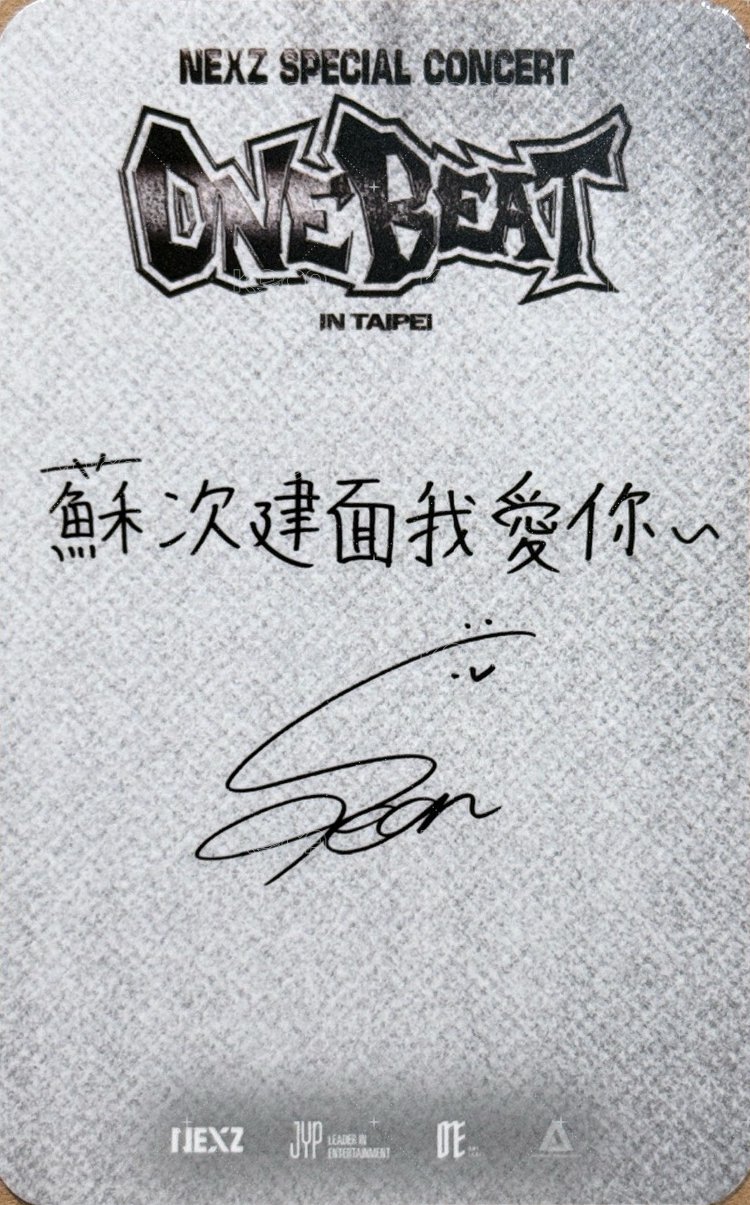 NEXZ SPECIAL CONCERT
ONE BEAT
IN TAIPEI
蘇次建面我愛你~
Seon
NEXZ
JYP LEADER IN
ENTERTAINMENT